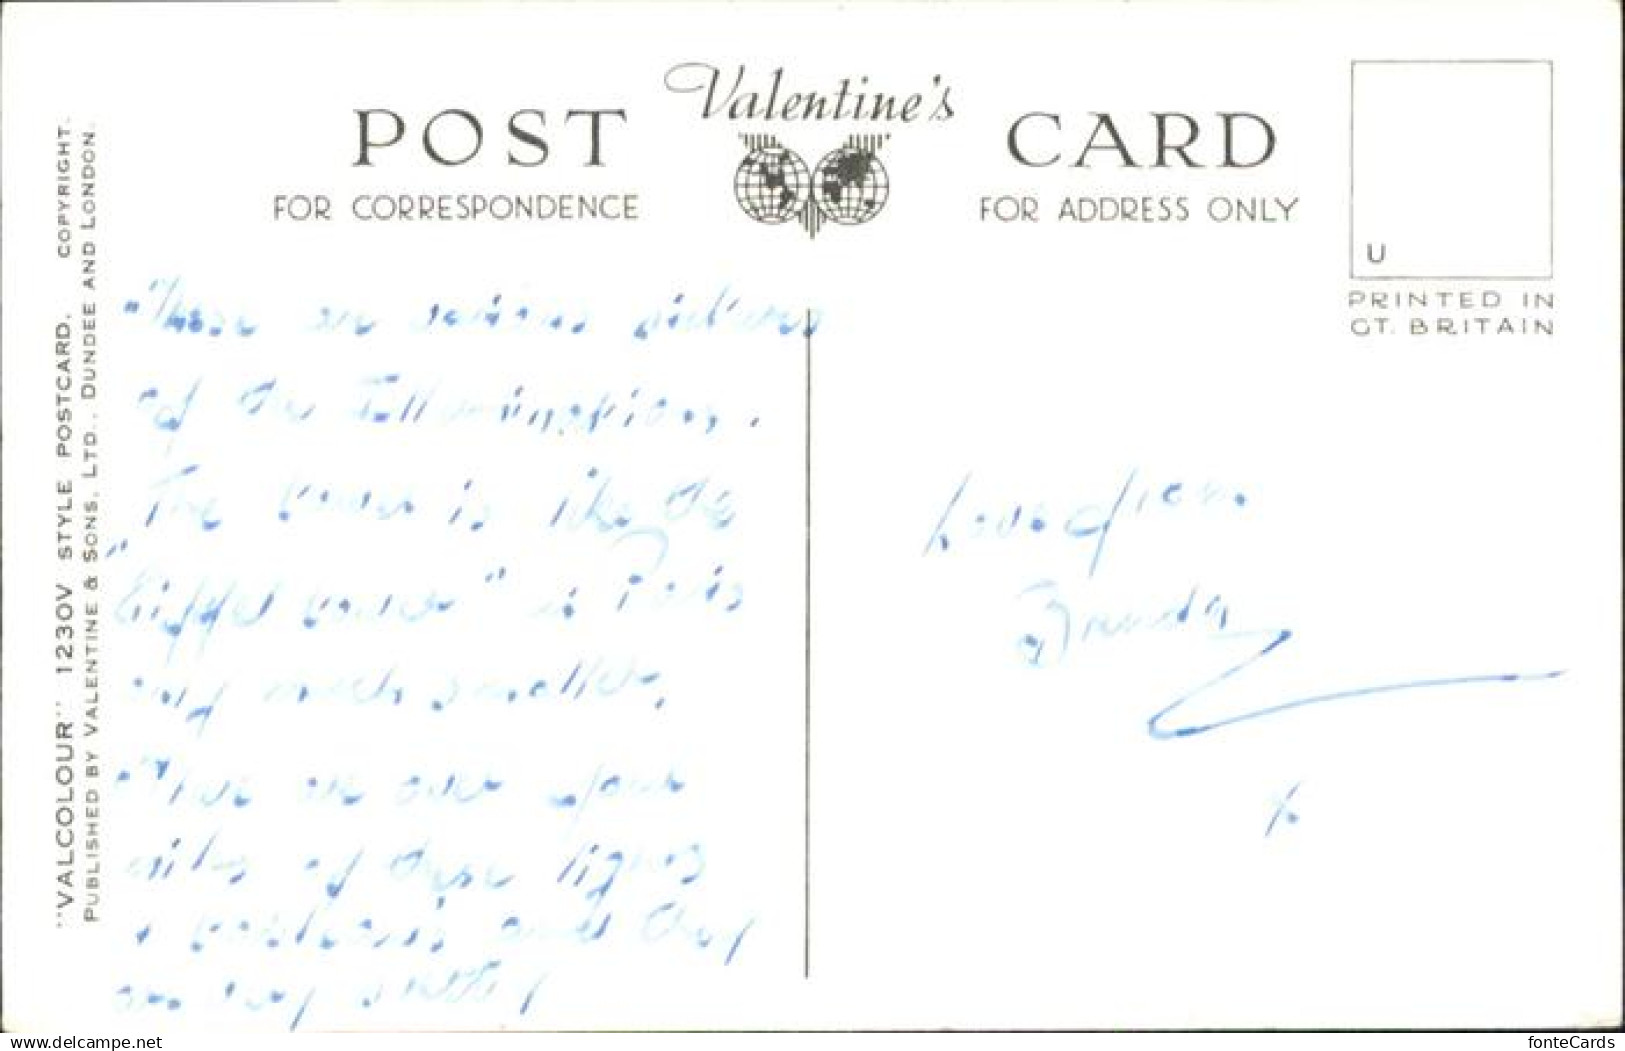 Valentine's
POST CARD
FOR CORRESPONDENCE
FOR ADDRESS ONLY
U
PRINTED IN
GT. BRITAIN
"VALCOLOUR" 1230V STYLE POSTCARD. COPYRIGHT.
PUBLISHED BY VALENTINE & SONS, LTD., DUNDEE AND LONDON.
These are various pictures
of the Illuminations.
The tower is like the
"Eiffel tower" in Paris
only much smaller.
There are over four
miles of these lights
and they
are very pretty
Love from
Brenda
x
delcampe.net
fonteCards